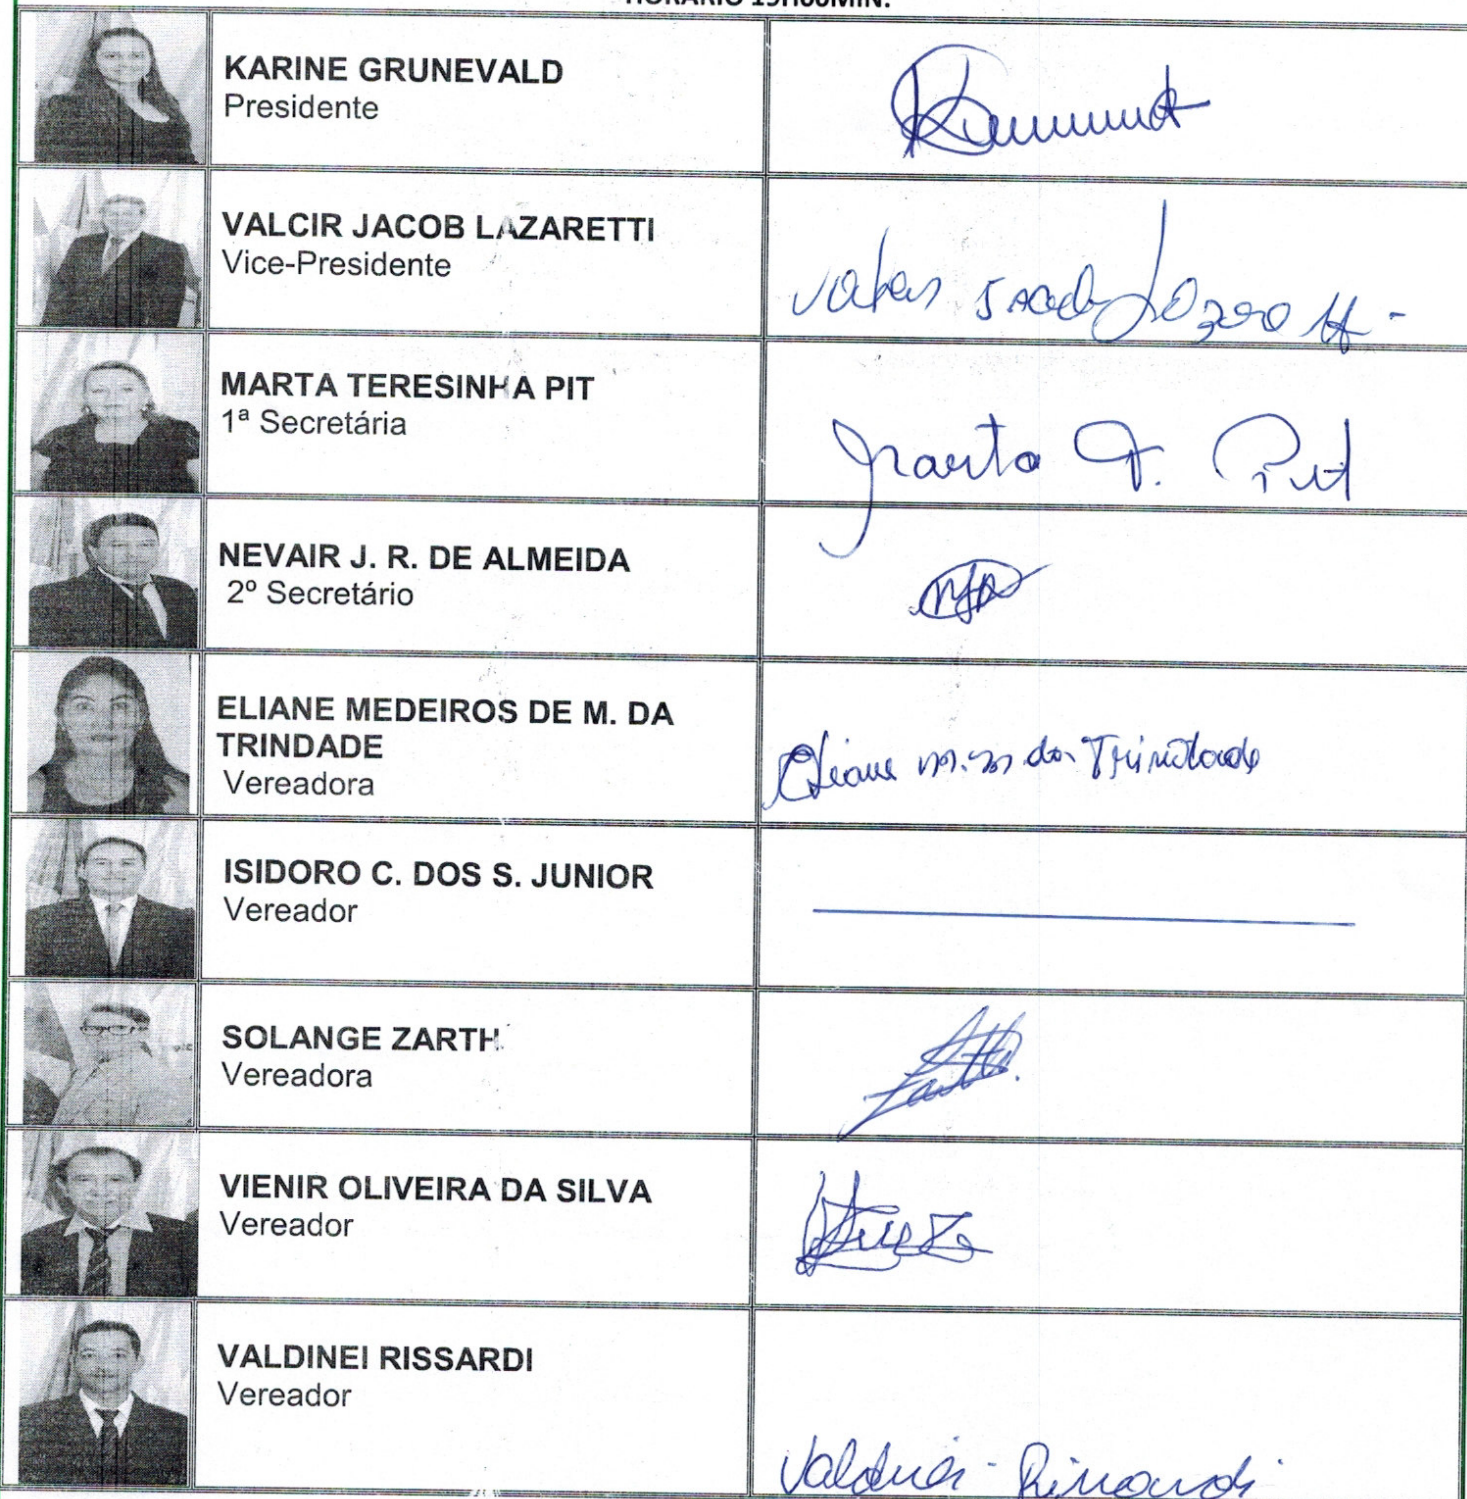 HORÁRIO 19H00MIN.
KARINE GRUNEVALD
Presidente
VALCIR JACOB LAZARETTI
Vice-Presidente
Valcir Jacob Lazaretti
MARTA TERESINHA PIT
1ª Secretária
Marta T. Pit
NEVAIR J. R. DE ALMEIDA
2º Secretário
ELIANE MEDEIROS DE M. DA
TRINDADE
Vereadora
Eliane M. M. da Trindade
ISIDORO C. DOS S. JUNIOR
Vereador
SOLANGE ZARTH
Vereadora
VIENIR OLIVEIRA DA SILVA
Vereador
VALDINEI RISSARDI
Vereador
Valdinei Rissardi